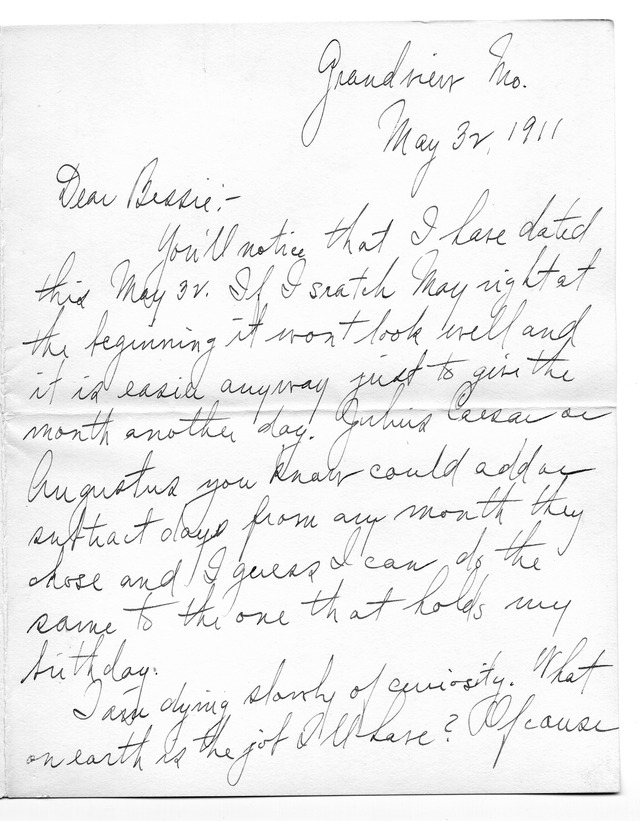 Grandview Mo.
May 32, 1911
Dear Bessie:-
You'll notice that I have dated
this May 32. If I sratch May right at
the beginning it wont look well and
it is easier anyway just to give the
month another day. Julius Caesar or
Augustus you know could add or
subtract days from any month they
chose and I guess I can do the
same to the one that holds my
birthday.
I am dying slowly of curiosity. What
on earth is the job I'll have? Of cause